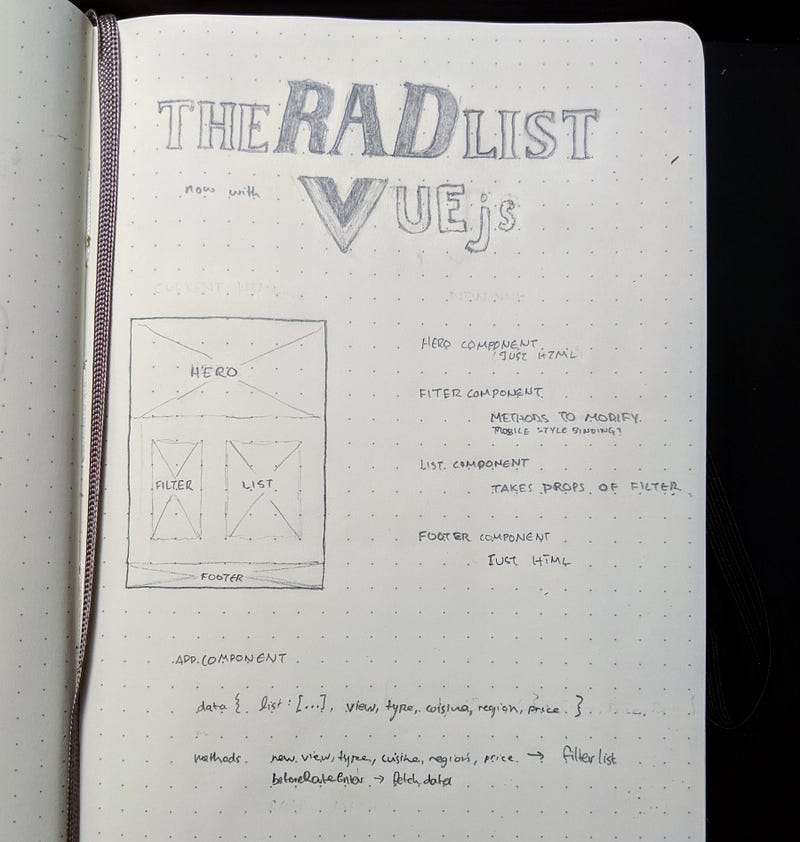 THE RAD LIST
now with VUEjs
HERO
FILTER
LIST
FOOTER
HERO COMPONENT
JUST HTML
FITER COMPONENT
METHODS TO MODIFY
MOBILE STYLE BINDING?
LIST COMPONENT
TAKES PROPS OF FILTER
FOOTER COMPONENT
JUST HTML
APP.COMPONENT
data { list: [...], view, type, cuisine, region, price }
methods. new view, type, cuisine, region, price → filter list
beforeRouteEnter → fetch data